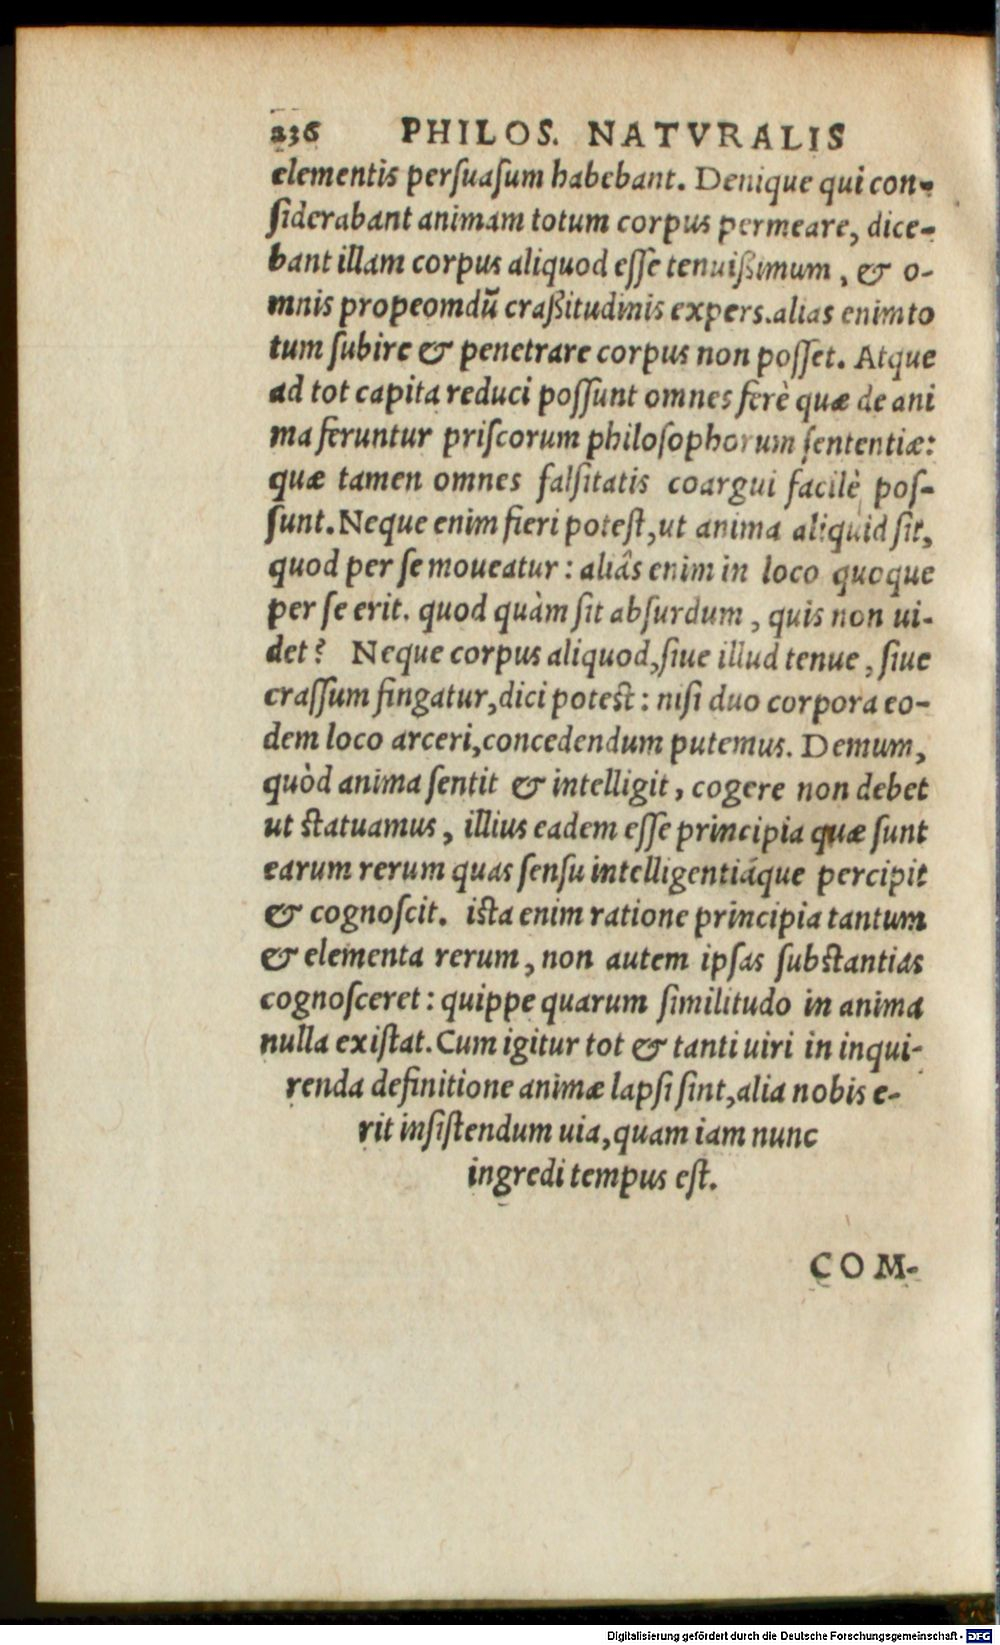 236 PHILOS. NATVRALIS
elementis perſuaſum habebant. Denique qui con-
ſiderabant animam totum corpus permeare, dice-
bant illam corpus aliquod eſſe tenuißimum, & o-
mnis propeomdū craßitudinis expers. alias enim to
tum ſubire & penetrare corpus non poſſet. Atque
ad tot capita reduci poſſunt omnes ferè quæ de ani
ma feruntur priſcorum philoſophorum ſententiæ:
quæ tamen omnes falſitatis coargui facilè poſ-
ſunt. Neque enim fieri poteſt, ut anima aliquid ſit,
quod per ſe moueatur: aliâs enim in loco quoque
per ſe erit. quod quàm ſit abſurdum, quis non ui-
det? Neque corpus aliquod, ſiue illud tenue, ſiue
craſſum fingatur, dici poteſt: niſi duo corpora eo-
dem loco arceri, concedendum putemus. Demum,
quòd anima ſentit & intelligit, cogere non debet
ut ſtatuamus, illius eadem eſſe principia quæ ſunt
earum rerum quas ſenſu intelligentiáque percipit
& cognoſcit. iſta enim ratione principia tantum
& elementa rerum, non autem ipſas ſubſtantias
cognoſceret: quippe quarum ſimilitudo in anima
nulla exiſtat. Cum igitur tot & tanti uiri in inqui-
renda definitione animæ lapſi ſint, alia nobis e-
rit inſiſtendum uia, quam iam nunc
ingredi tempus eſt.
COM-
Digitalisierung gefördert durch die Deutsche Forschungsgemeinschaft - DFG